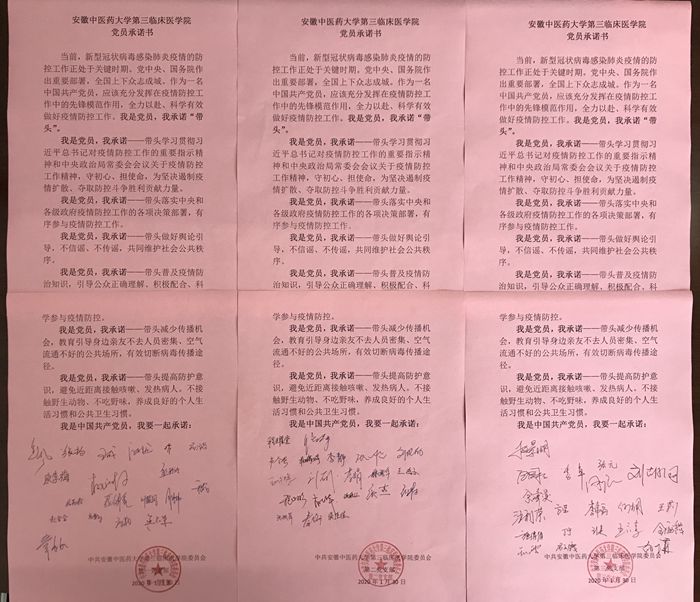 安徽中医药大学第三临床医学院
党员承诺书
当前，新型冠状病毒感染肺炎疫情的防
控工作正处于关键时期，党中央、国务院作
出重要部署，全国上下众志成城。作为一名
中国共产党员，应该充分发挥在疫情防控工
作中的先锋模范作用，全力以赴、科学有效
做好疫情防控工作。我是党员，我承诺“带
头”。
我是党员，我承诺——带头学习贯彻习
近平总书记对疫情防控工作的重要指示精
神和中央政治局常委会会议关于疫情防控
工作精神，守初心、担使命，为坚决遏制疫
情扩散、夺取防控斗争胜利贡献力量。
我是党员，我承诺——带头落实中央和
各级政府疫情防控工作的各项决策部署，有
序参与疫情防控工作。
我是党员，我承诺——带头做好舆论引
导，不信谣、不传谣，共同维护社会公共秩
序。
我是党员，我承诺——带头普及疫情防
治知识，引导公众正确理解、积极配合、科
学参与疫情防控。
我是党员，我承诺——带头减少传播机
会，教育引导身边亲友不去人员密集、空气
流通不好的公共场所，有效切断病毒传播途
径。
我是党员，我承诺——带头提高防护意
识，避免近距离接触咳嗽、发热病人。不接
触野生动物、不吃野味，养成良好的个人生
活习惯和公共卫生习惯。
我是中国共产党员，我要一起承诺：
中共安徽中医药大学第三临床医学院委员会
2020年1月30日
安徽中医药大学第三临床医学院
党员承诺书
当前，新型冠状病毒感染肺炎疫情的防
控工作正处于关键时期，党中央、国务院作
出重要部署，全国上下众志成城。作为一名
中国共产党员，应该充分发挥在疫情防控工
作中的先锋模范作用，全力以赴、科学有效
做好疫情防控工作。我是党员，我承诺“带
头”。
我是党员，我承诺——带头学习贯彻习
近平总书记对疫情防控工作的重要指示精
神和中央政治局常委会会议关于疫情防控
工作精神，守初心、担使命，为坚决遏制疫
情扩散、夺取防控斗争胜利贡献力量。
我是党员，我承诺——带头落实中央和
各级政府疫情防控工作的各项决策部署，有
序参与疫情防控工作。
我是党员，我承诺——带头做好舆论引
导，不信谣、不传谣，共同维护社会公共秩
序。
我是党员，我承诺——带头普及疫情防
治知识，引导公众正确理解、积极配合、科
学参与疫情防控。
我是党员，我承诺——带头减少传播机
会，教育引导身边亲友不去人员密集、空气
流通不好的公共场所，有效切断病毒传播途
径。
我是党员，我承诺——带头提高防护意
识，避免近距离接触咳嗽、发热病人。不接
触野生动物、不吃野味，养成良好的个人生
活习惯和公共卫生习惯。
我是中国共产党员，我要一起承诺：
中共安徽中医药大学第三临床医学院委员会
第二党支部
2020年1月30日
安徽中医药大学第三临床医学院
党员承诺书
当前，新型冠状病毒感染肺炎疫情的防
控工作正处于关键时期，党中央、国务院作
出重要部署，全国上下众志成城。作为一名
中国共产党员，应该充分发挥在疫情防控工
作中的先锋模范作用，全力以赴、科学有效
做好疫情防控工作。我是党员，我承诺“带
头”。
我是党员，我承诺——带头学习贯彻习
近平总书记对疫情防控工作的重要指示精
神和中央政治局常委会会议关于疫情防控
工作精神，守初心、担使命，为坚决遏制疫
情扩散、夺取防控斗争胜利贡献力量。
我是党员，我承诺——带头落实中央和
各级政府疫情防控工作的各项决策部署，有
序参与疫情防控工作。
我是党员，我承诺——带头做好舆论引
导，不信谣、不传谣，共同维护社会公共秩
序。
我是党员，我承诺——带头普及疫情防
治知识，引导公众正确理解、积极配合、科
学参与疫情防控。
我是党员，我承诺——带头减少传播机
会，教育引导身边亲友不去人员密集、空气
流通不好的公共场所，有效切断病毒传播途
径。
我是党员，我承诺——带头提高防护意
识，避免近距离接触咳嗽、发热病人。不接
触野生动物、不吃野味，养成良好的个人生
活习惯和公共卫生习惯。
我是中国共产党员，我要一起承诺：
中共安徽中医药大学第三临床医学院委员会
2020年1月30日